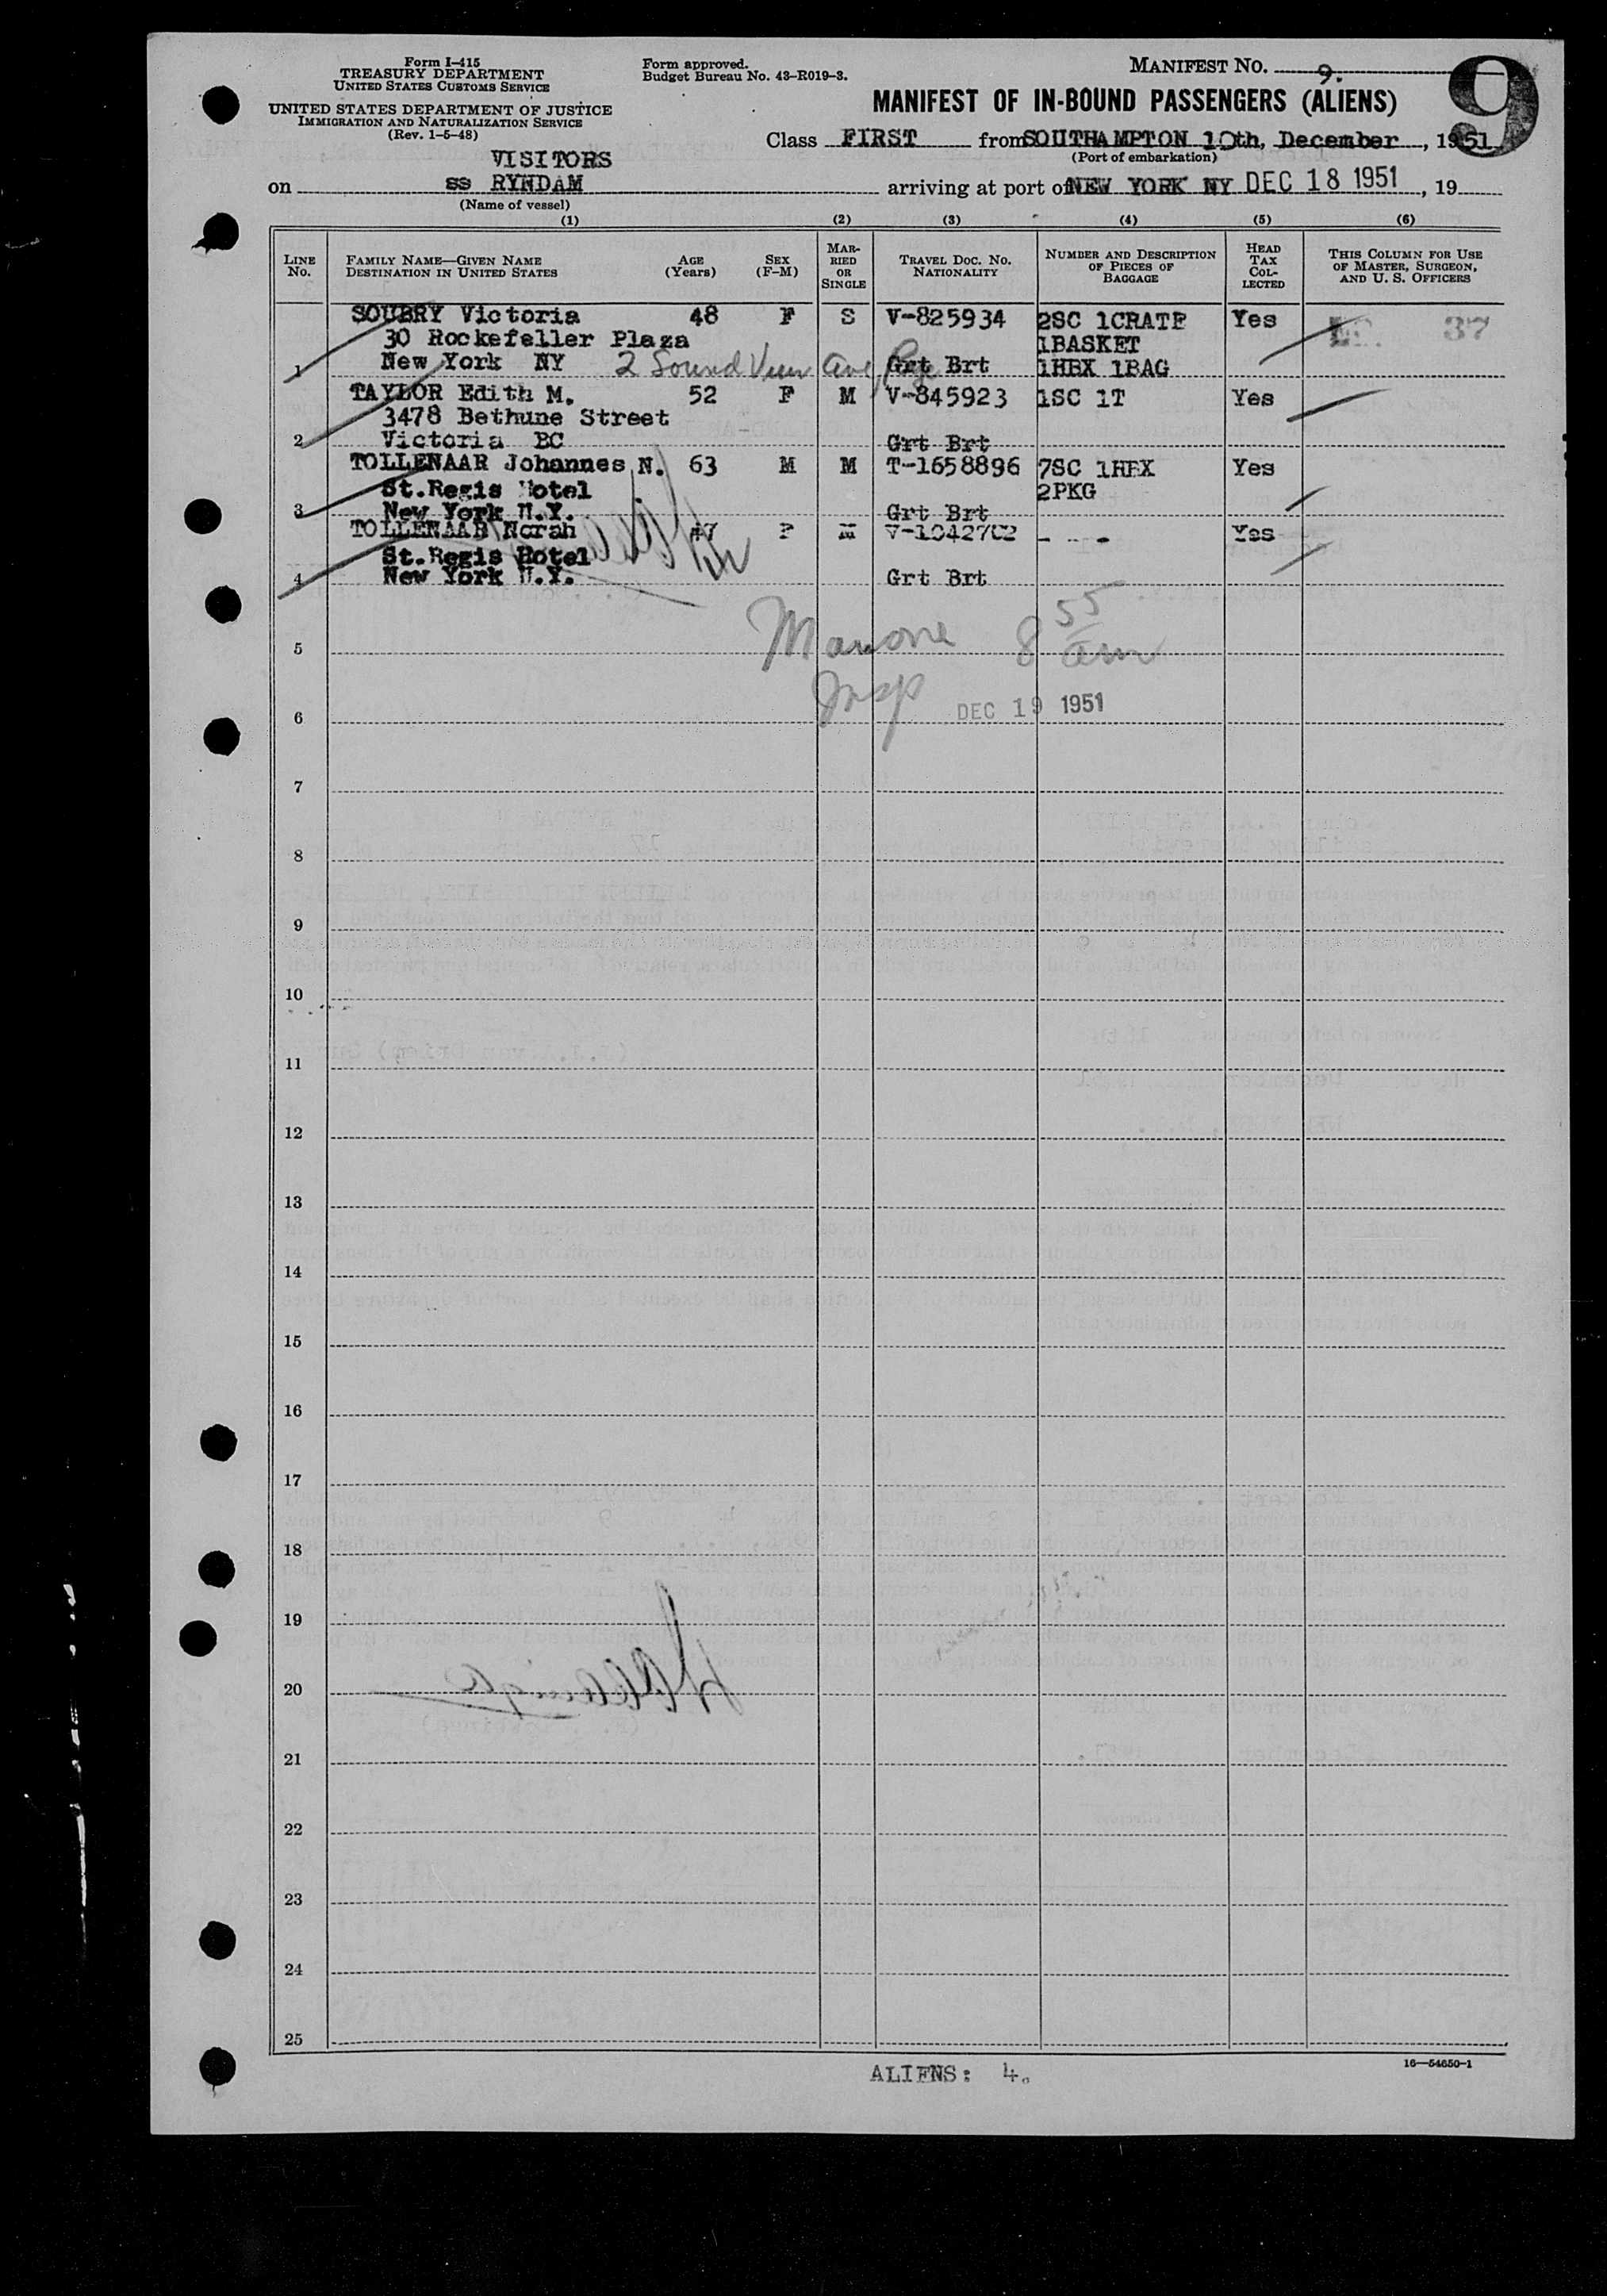 Form I-415
TREASURY DEPARTMENT
UNITED STATES CUSTOMS SERVICE
UNITED STATES DEPARTMENT OF JUSTICE
IMMIGRATION AND NATURALIZATION SERVICE
(Rev. 1-5-48)
Form approved.
Budget Bureau No. 43-R019-3.
MANIFEST NO. 9.
9
MANIFEST OF IN-BOUND PASSENGERS (ALIENS)
Class FIRST from SOUTHAMPTON 10th, December, 1951
(Port of embarkation)
VISITORS
on ss RYNDAM arriving at port of NEW YORK NY DEC 18 1951, 19
(Name of vessel)
(1) (2) (3) (4) (5) (6)
LINE No. FAMILY NAME—GIVEN NAME DESTINATION IN UNITED STATES AGE (Years) SEX (F-M) MARRIED OR SINGLE TRAVEL DOC. NO. NATIONALITY NUMBER AND DESCRIPTION OF PIECES OF BAGGAGE HEAD TAX COLLECTED THIS COLUMN FOR USE OF MASTER, SURGEON, AND U. S. OFFICERS
SOUBRY Victoria 48 F S V-825934 2SC 1CRATE Yes 37
30 Rockefeller Plaza 1BASKET
1 New York NY 2 Sound View Ave, Rye Grt Brt 1HBX 1BAG
TAYLOR Edith M. 52 F M V-845923 1SC 1T Yes
3478 Bethune Street
2 Victoria BC Grt Brt
TOLLENAAR Johannes N. 63 M M T-1658896 7SC 1HBX Yes
St.Regis Hotel 2PKG
3 New York N.Y. Grt Brt
TOLLENAAR Norah 47 F M V-1042702 - - - Yes
St.Regis Hotel
4 New York N.Y. Grt Brt
5 8 55 am
6 Insp DEC 19 1951
7
8
9
10
11
12
13
14
15
16
17
18
19
20
21
22
23
24
25
ALIENS: 4.
16—54650-1